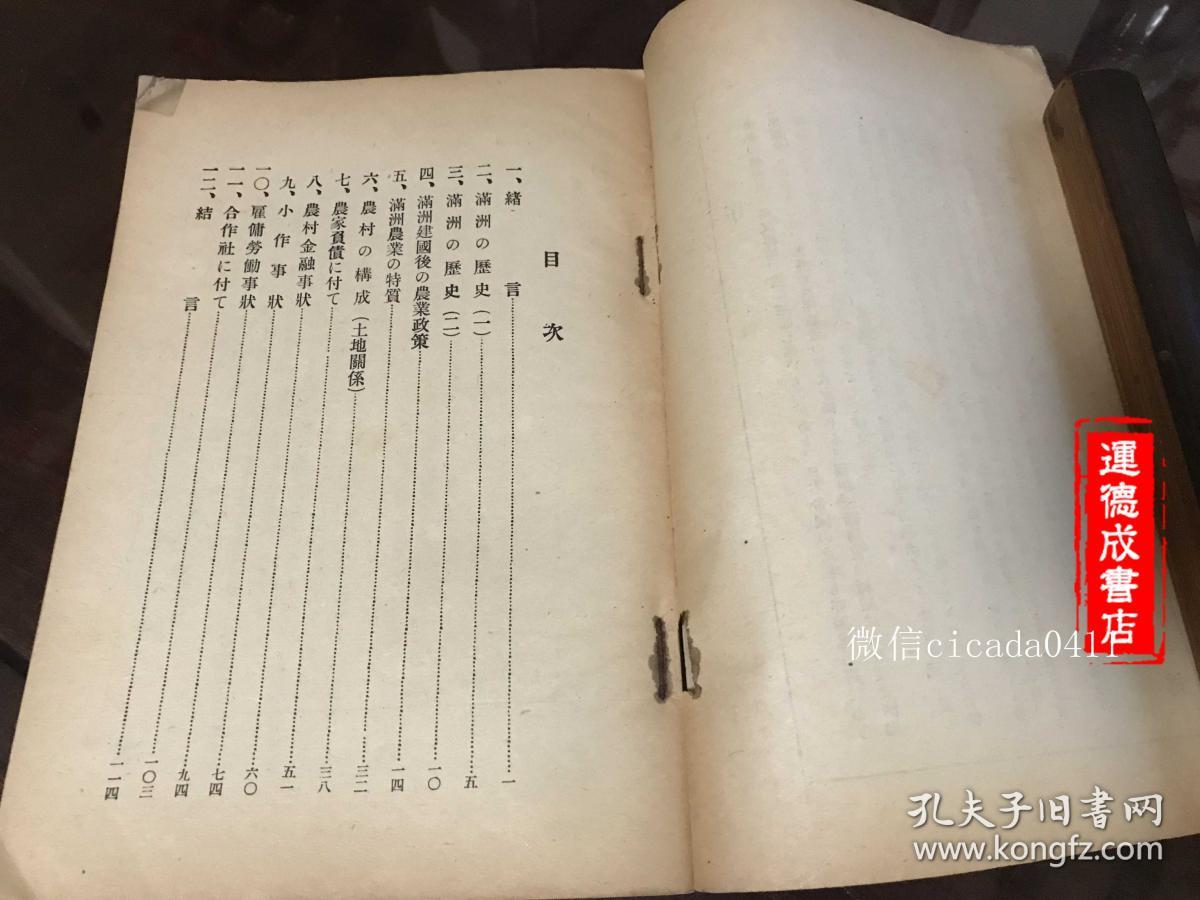 目次
一、緒言……一
二、滿洲の歷史(一)……五
三、滿洲の歷史(二)……一〇
四、滿洲建國後の農業政策……一四
五、滿洲農業の特質……三二
六、農村の構成(土地關係)……三八
七、農家負債に付て……五一
八、農村金融事狀……六〇
九、小作事狀……七四
一〇、雇傭勞働事狀……九四
一一、合作社に付て……一〇三
一二、結言……一一四
運德成書店
微信cicada0411
孔夫子旧书网
www.kongfz.com